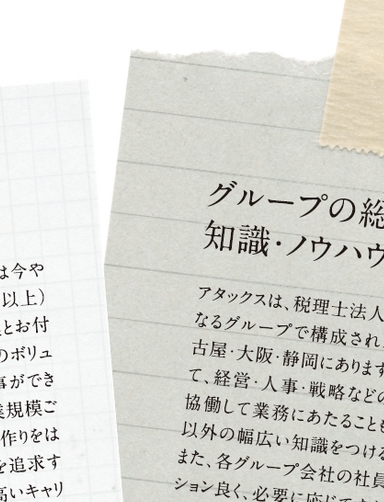 は今や
以上）
とお付
のボリュ
事ができ
業規模ご
作りをは
を追求す
高いキャリ
グループの総
知識・ノウハウ
アタックスは、税理士法人
なるグループで構成され
古屋・大阪・静岡にあります
て、経営・人事・戦略などの
協働して業務にあたることも
以外の幅広い知識をつける
また、各グループ会社の社員
ション良く、必要に応じて